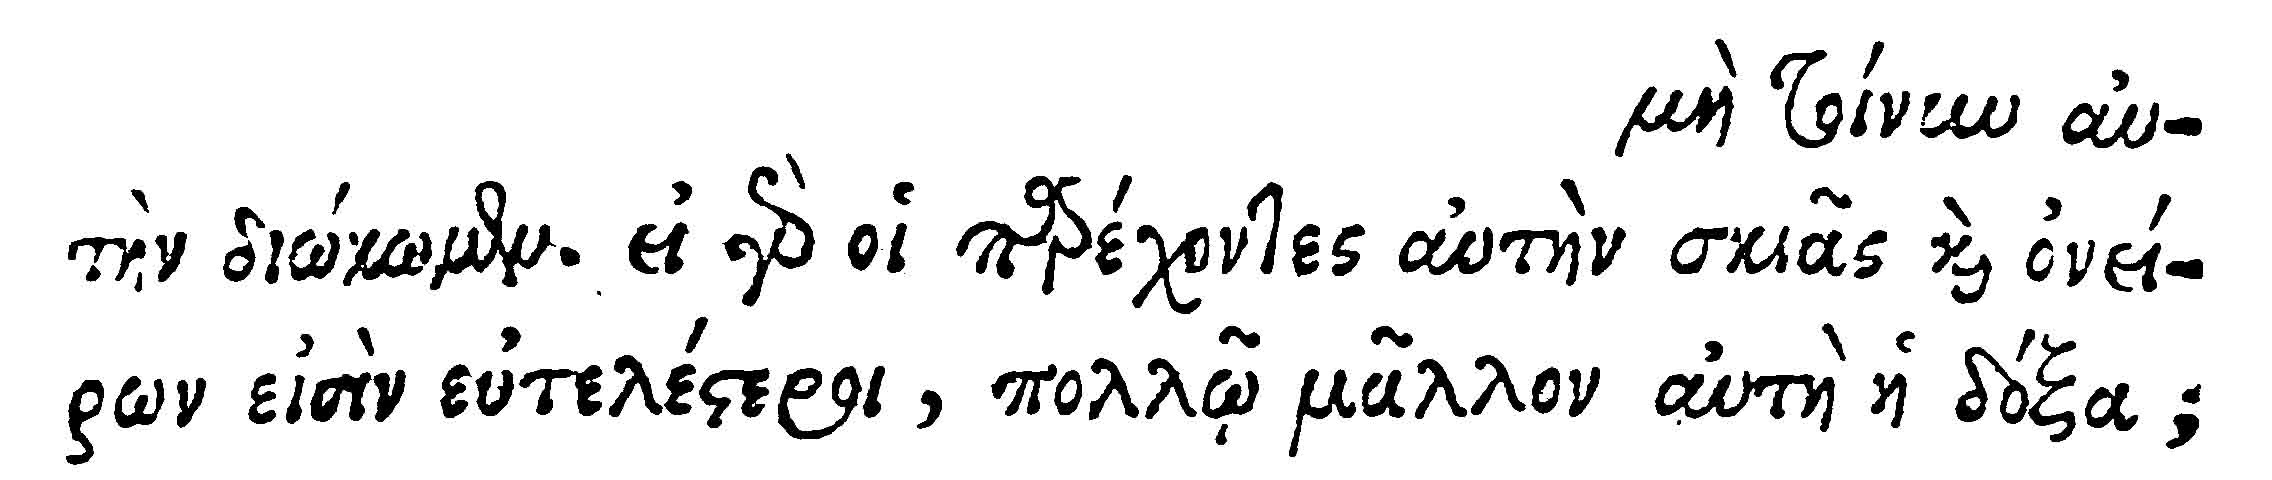 μὴ τοίνυν αὐ-
τὴν διώκωμεν. εἰ γὰρ οἱ παρέχοντες αὐτὴν σκιᾶς καὶ ὀνεί-
ρων εἰσὶν εὐτελέστεροι, πολλῷ μᾶλλον αὐτὴ ἡ δόξα;